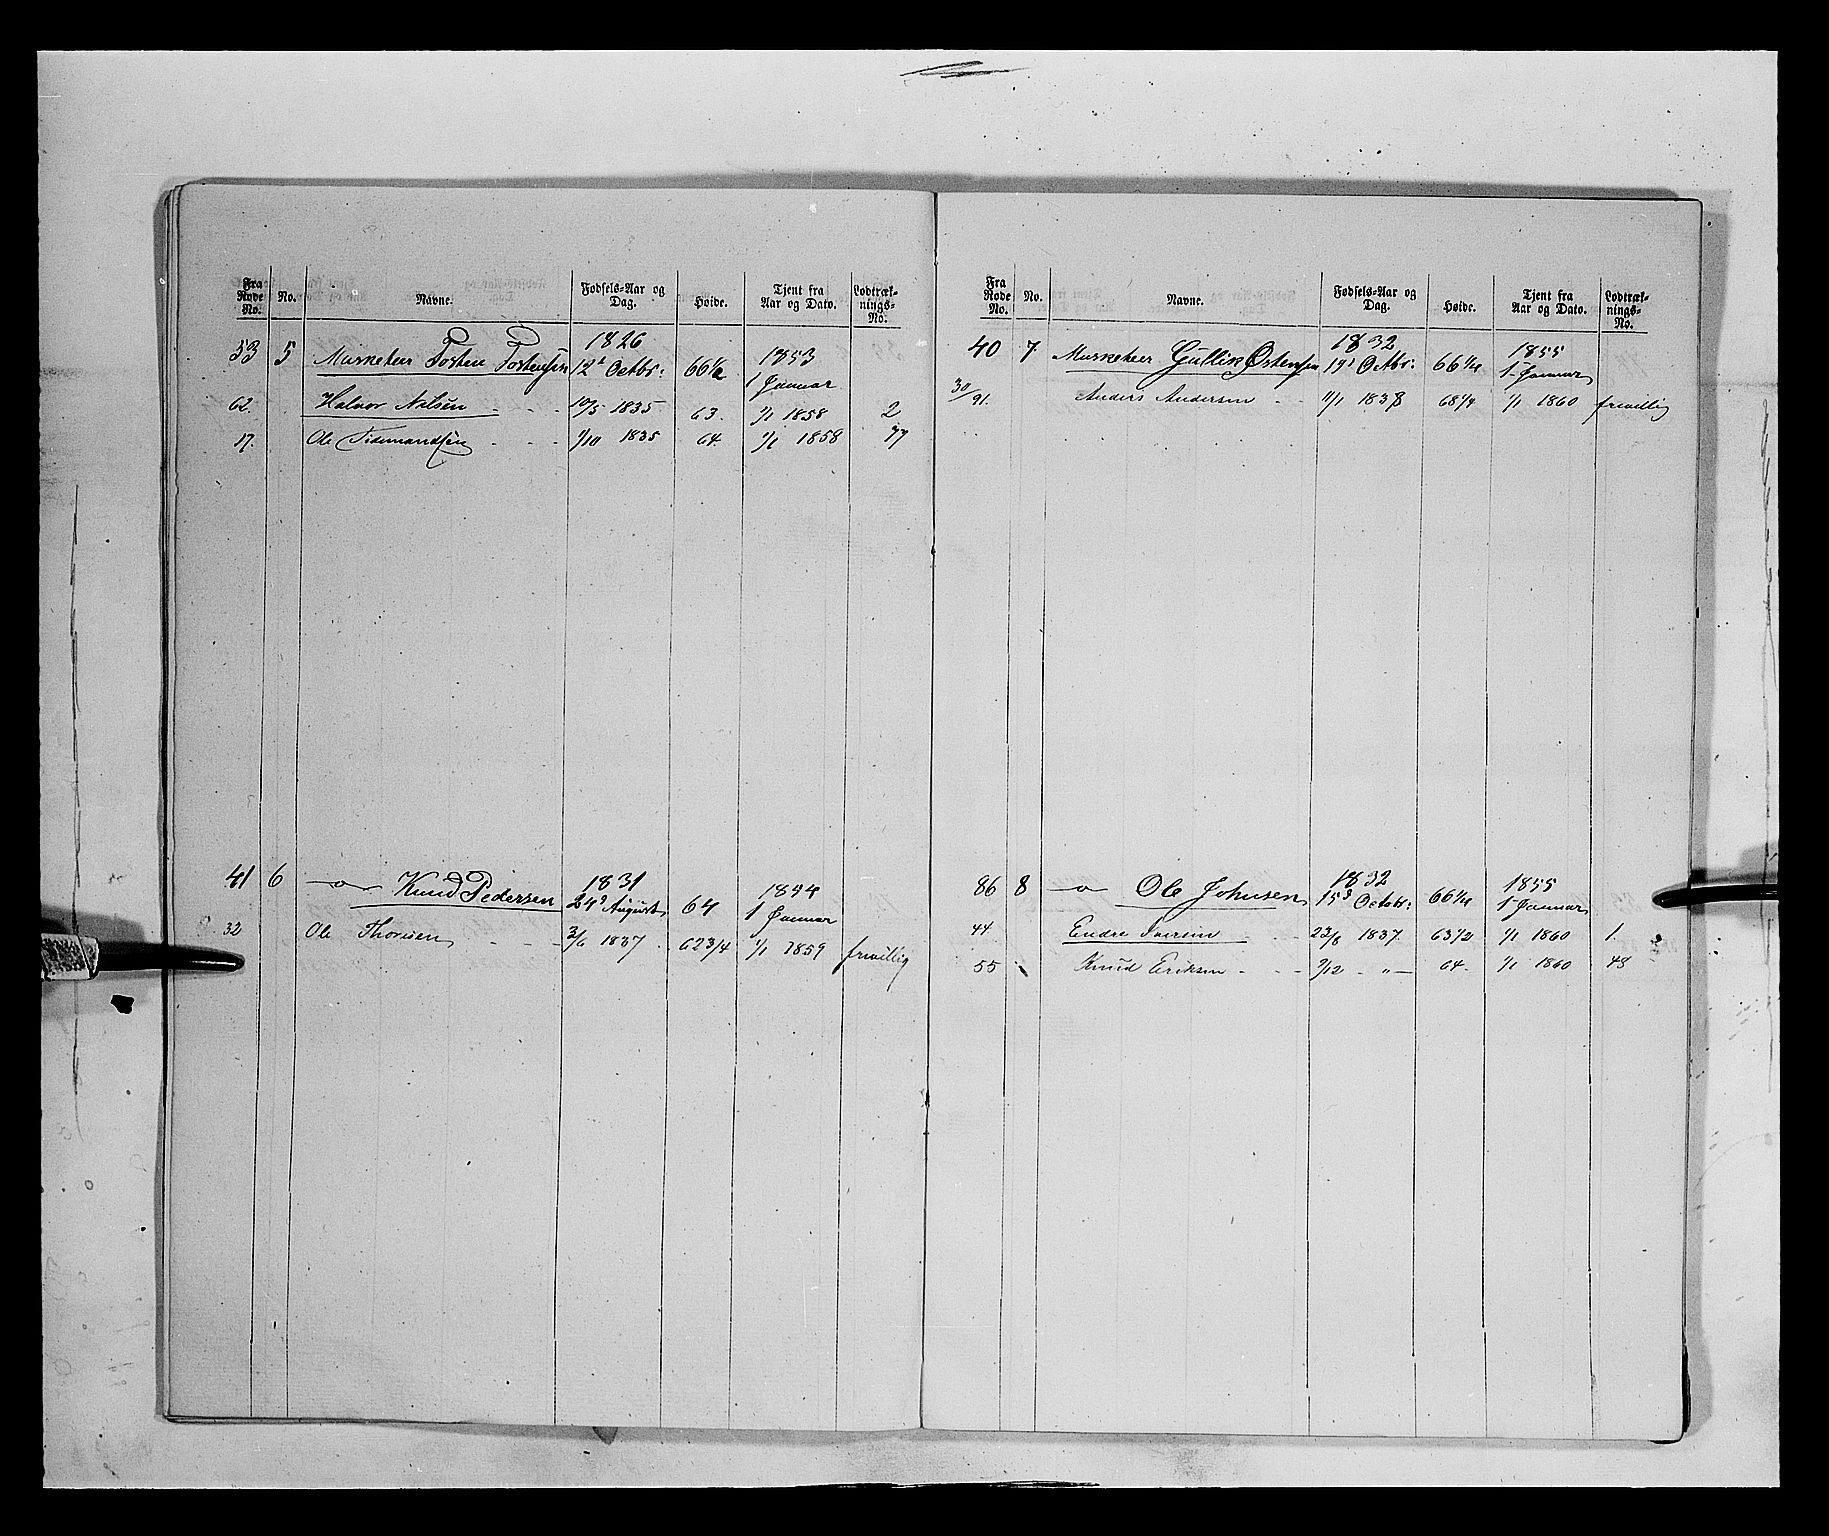 Fra Rode No. | No. | Navne. | Fødsels-Aar og Dag. | Høide. | Tjent fra Aar og Dato. | Lodtræk-nings-No.
53 5 Musketeer Tosten Tostensen 1826 12t Octbr: 66 1/2 1853 1 Januar
62. Halvor Nilsen - - - 10/5 1835 63. 1/1 1858 2
17. Ole Tidemandsen - - - 1/10 1835 64. 1/1 1858 77
41 6 —"— Knud Pedersen 1831 24d August 64 1854 1 Januar
32 Ole Thorsen - - - 3/6 1837 62 3/4 1/1 1859 frivillig
Fra Rode No. | No. | Navne. | Fødsels-Aar og Dag. | Høide. | Tjent fra Aar og Dato. | Lodtræk-nings-No.
40 7 Musketeer Gullik Østensen 1832 19d Octbr: 66 1/4 1855 1 Januar
30/91. Anders Andersen - - 11/1 1838 68 1/4 1/1 1860 frivillig
86 8 —"— Ole Johnsen 1832 15d Octobr: 66 1/4 1855 1 Januar
44 Endre Iversen - - - 23/8 1837. 63 1/2 1/1 1860 1.
55 Knud Eriksen - - - 9/12 - " - 64. 1/1 1860 48